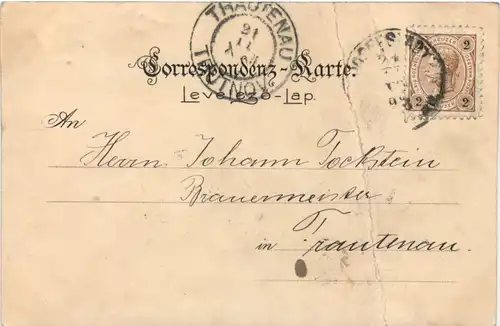 TRAUTENAU
TRUTNOV
21
Correspondenz-Karte.
Levelező-Lap.
2
2
2
An
Herrn Johann Tockstein
Brauermeister
in Trautenau.